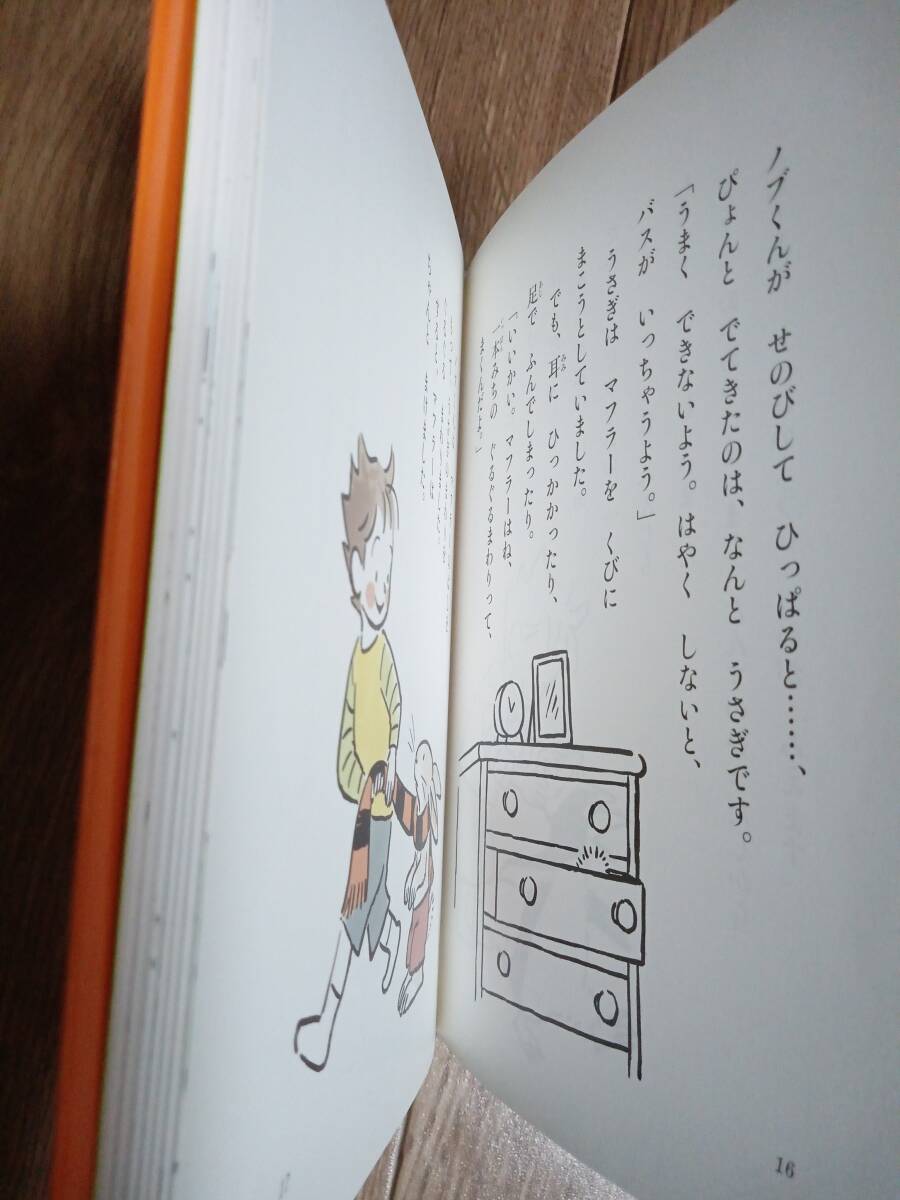 ノブくんが せのびして ひっぱると……、
ぴょんと でてきたのは、なんと うさぎです。
「うまく できないよう。はやく しないと、
バスが いっちゃうよう。」
うさぎは マフラーを くびに
まこうとしていました。
でも、耳に ひっかかったり、
足で ふんでしまったり。
「いいかい。マフラーはね、
一本みちの ぐるぐるまわりって、
まくんだよ。」
16